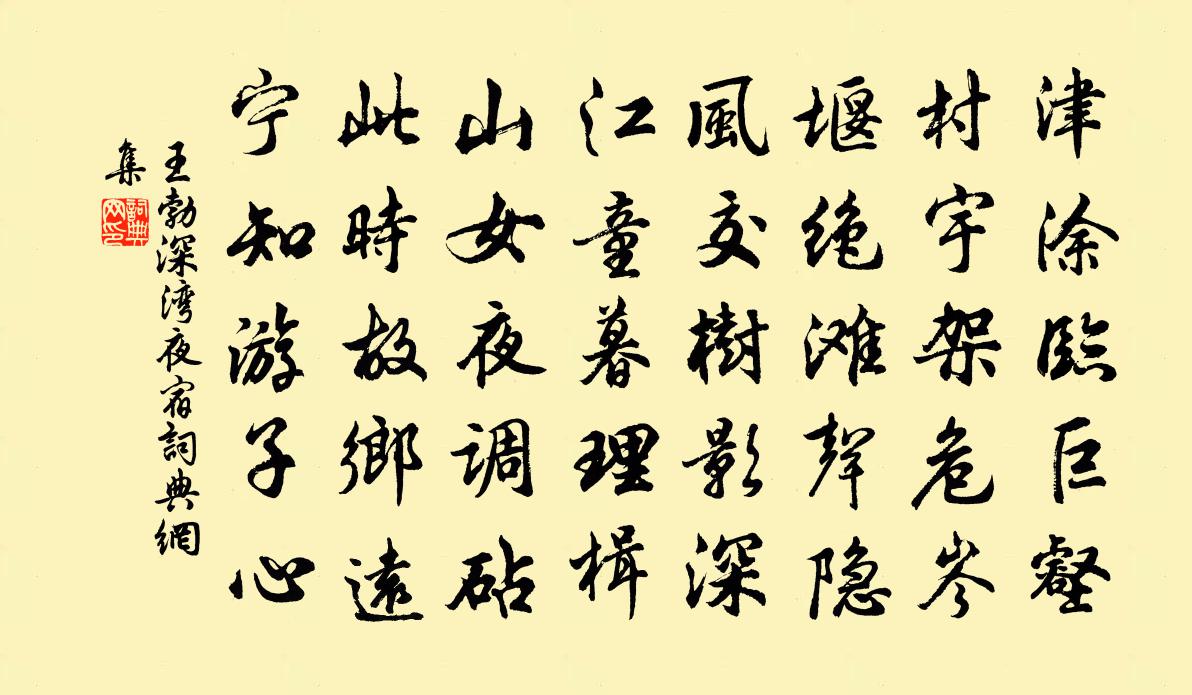 津涂臨巨壑
村宇架危岑
堰绝滩聲隐
風交樹影深
江童暮理楫
山女夜调砧
此時故鄉遠
宁知游子心
王勃深湾夜宿詞典網
集
詞典
网印